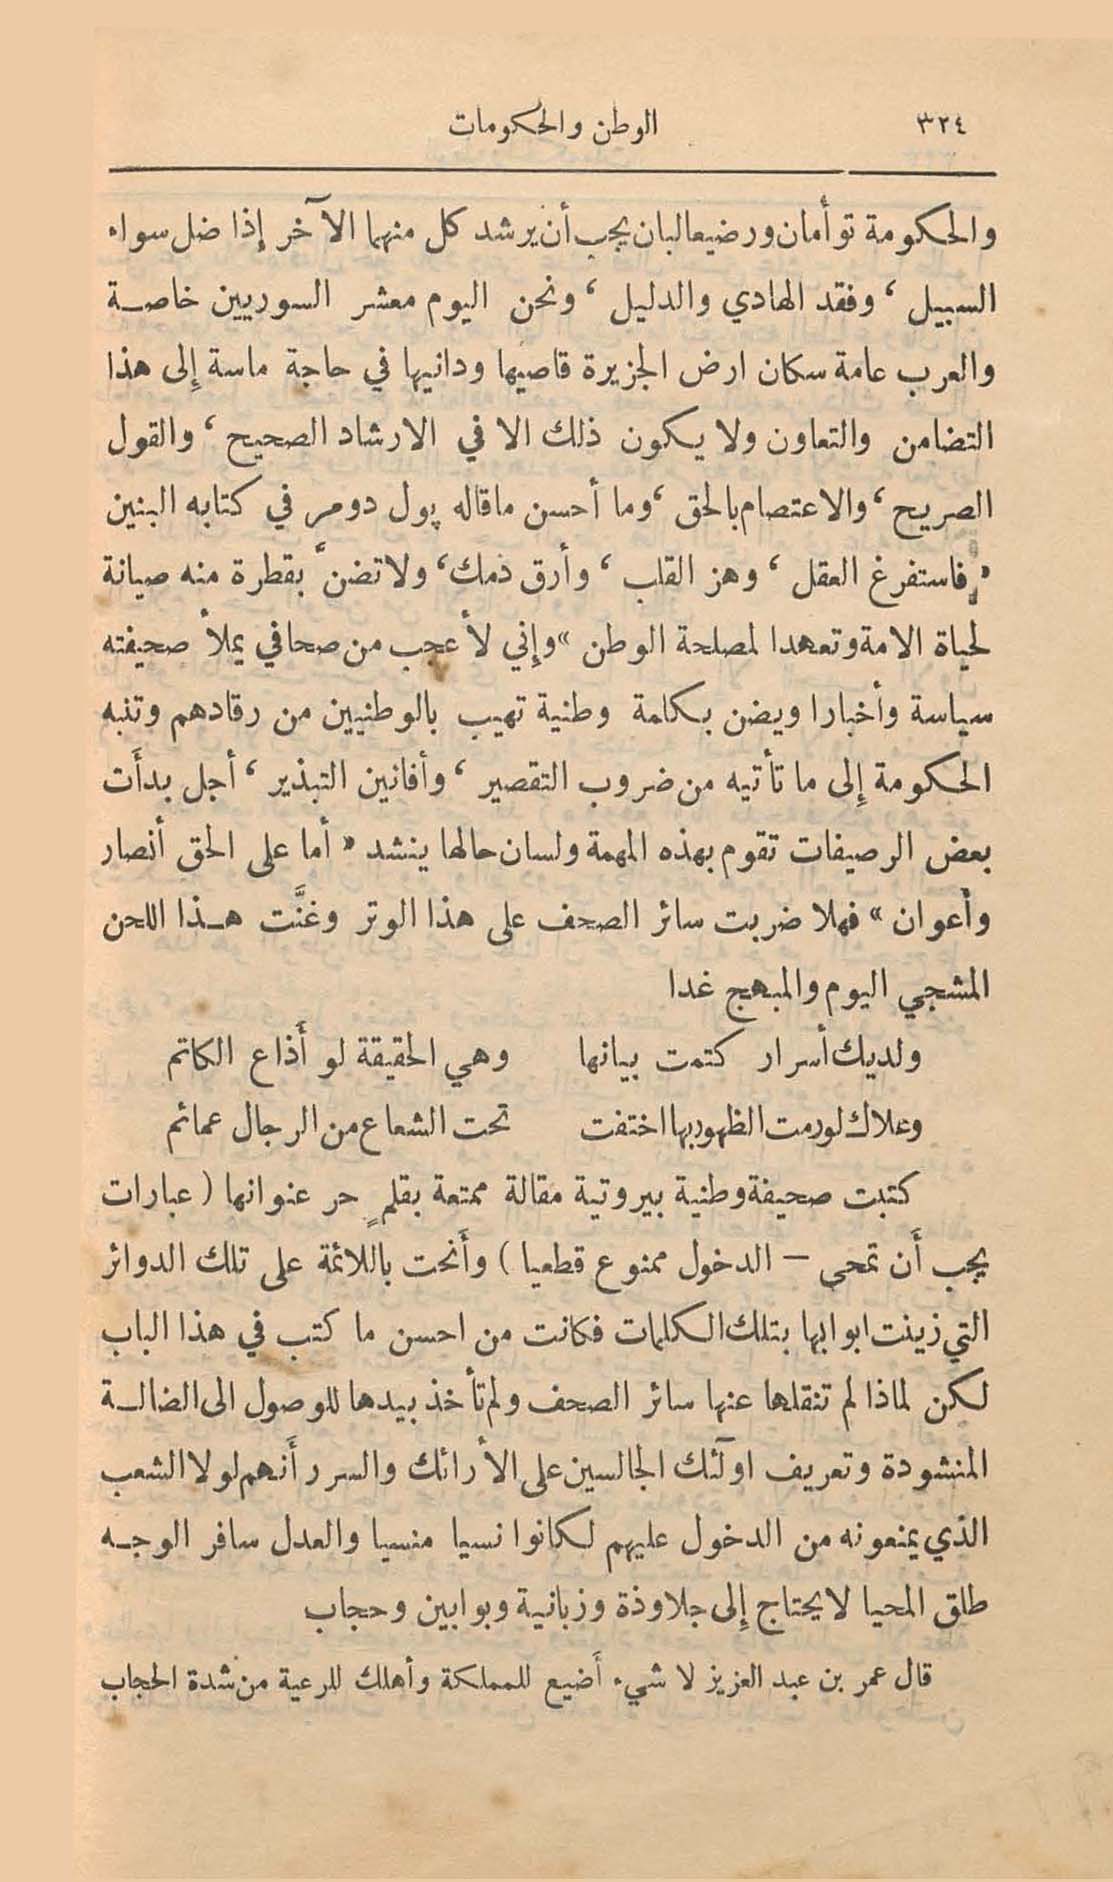 ٣٢٤ الوطن والحكومات
والحكومة توأمان ورضيعا لبان يجب أن يرشد كل منهما الآخر إذا ضل سواء
السبيل ، وفقد الهادي والدليل ، ونحن اليوم معشر السوريين خاصة
والعرب عامة سكان ارض الجزيرة قاصيها ودانيها في حاجة ماسة إلى هذا
التضامن والتعاون ولا يكون ذلك الا في الارشاد الصحيح ، والقول
الصريح ، والاعتصام بالحق ، وما أحسن ما قاله پول دومر في كتابه البنين
« فاستفرغ العقل ، وهز القلب ، وأرق دمك ، ولا تضنَّ بقطرة منه صيانة
لحياة الامة وتعهدا لمصلحة الوطن » وإني لأعجب من صحافي يملأ صحيفته
سياسة وأخبارا ويضن بكلمة وطنية تهيب بالوطنيين من رقادهم وتنبه
الحكومة إلى ما تأتيه من ضروب التقصير ، وأفانين التبذير ، أجل بدأَت
بعض الرصيفات تقوم بهذه المهمة ولسان حالها ينشد « أما على الحق أنصار
وأعوان » فهلا ضربت سائر الصحف على هذا الوتر وغنَّت هذا اللحن
المشجي اليوم والمبهج غدا
ولديك أسرار كتمت بيانها وهي الحقيقة لو أَذاع الكاتم
وعلاك لو رمت الظهور بها اختفت تحت الشعاع من الرجال عمائم
كتبت صحيفة وطنية بيروتية مقالة ممتعة بقلمٍ حر عنوانها ( عبارات
يجب أَن تمحى — الدخول ممنوع قطعيا ) وأَنحت باللائمة على تلك الدوائر
التي زينت ابوابها بتلك الكلمات فكانت من احسن ما كتب في هذا الباب
لكن لماذا لم تنقلها عنها سائر الصحف ولم تأخذ بيدها للوصول الى الضالة
المنشودة وتعريف اولئك الجالسين على الأرائك والسرر أَنهم لولا الشعب
الذي يمنعونه من الدخول عليهم لكانوا نسيا منسيا والعدل سافر الوجه
طلق المحيا لا يحتاج إلى جلاوذة وزبانية وبوابين وحجاب
قال عمر بن عبد العزيز لا شيء أَضيع للمملكة وأهلك للرعية من شدة الحجاب